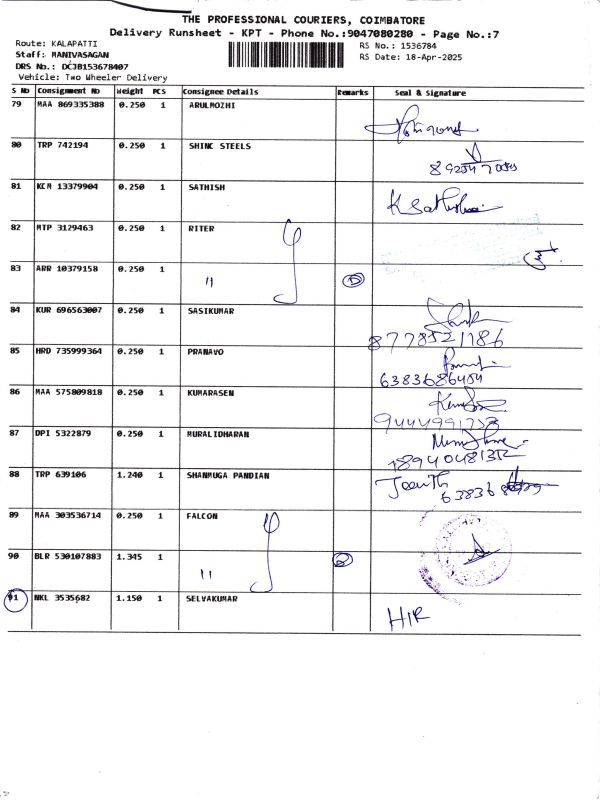 THE PROFESSIONAL COURIERS, COIMBATORE
Delivery Runsheet - KPT - Phone No.:9047080280 - Page No.:7
Route: KALAPATTI RS No.: 1536784
Staff: MANIVASAGAN RS Date: 18-Apr-2025
DRS No.: DCJB153678407
Vehicle: Two Wheeler Delivery
S No Consignment No Weight PCS Consignee Details Remarks Seal & Signature
79 MAA 869335388 0.250 1 ARULMOZHI
80 TRP 742194 0.250 1 SHINC STEELS
81 KCM 13379904 0.250 1 SATHISH
82 MTP 3129463 0.250 1 RITER
83 ARR 10379158 0.250 1 "
84 KUR 696563007 0.250 1 SASIKUMAR
8778521786
85 HRD 735999364 0.250 1 PRANAVO
6383686484
86 MAA 575809818 0.250 1 KUMARASEN
87 DPI 5322879 0.250 1 MURALIDHARAN
88 TRP 639106 1.240 1 SHANMUGA PANDIAN
89 MAA 303536714 0.250 1 FALCON
90 BLR 530107883 1.345 1 " 2
91 NKL 3535682 1.150 1 SELVAKUMAR